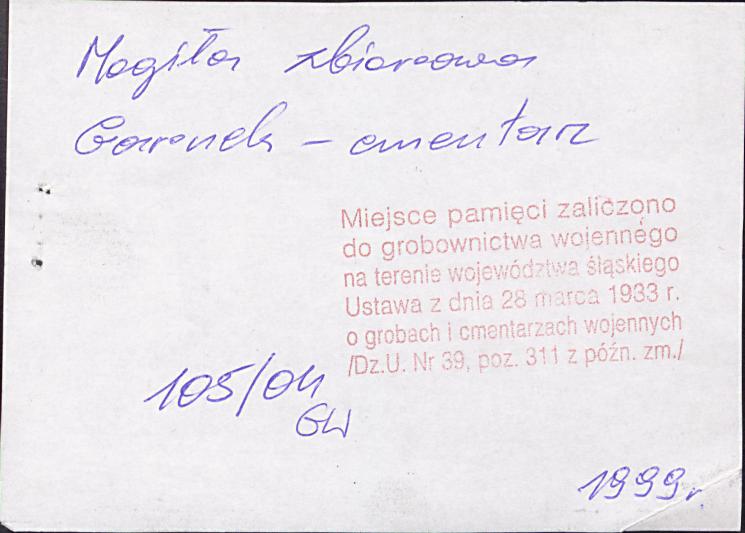 Mogiła zbiorowa
Garnek - cmentarz
Miejsce pamięci zaliczono
do grobownictwa wojennego
na terenie województwa śląskiego
Ustawa z dnia 28 marca 1933 r.
o grobach i cmentarzach wojennych
/Dz.U. Nr 39, poz. 311 z późn. zm./
105/04
GW
1999r